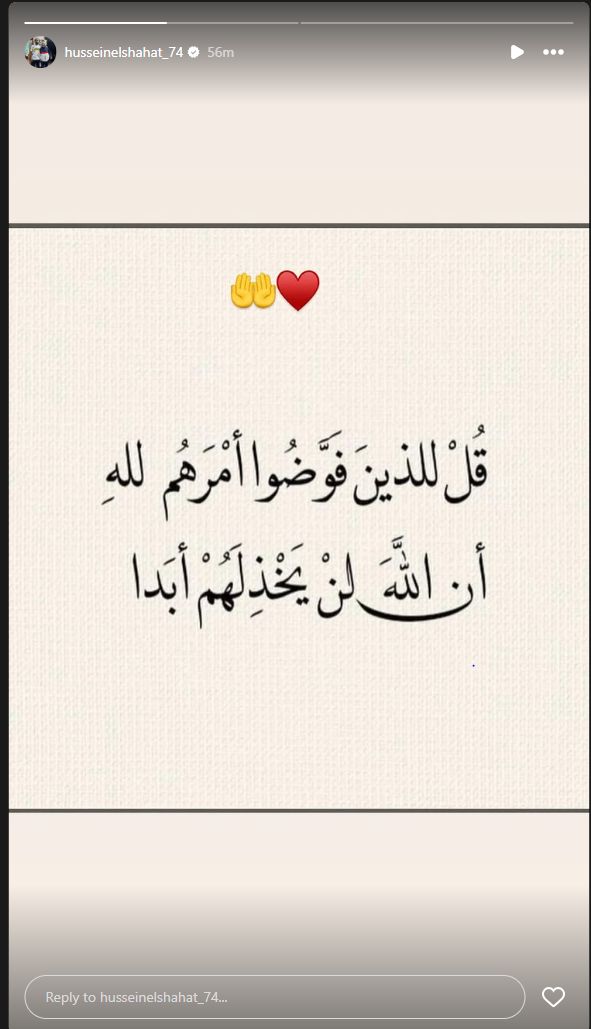 husseinelshahat_74 56m
🤲♥️
قُلْ للذينَ فَوَّضُوا أمْرَهُم للهِ
أن اللَّهَ لنْ يَخْذِلَهُمْ أبَدا
Reply to husseinelshahat_74...